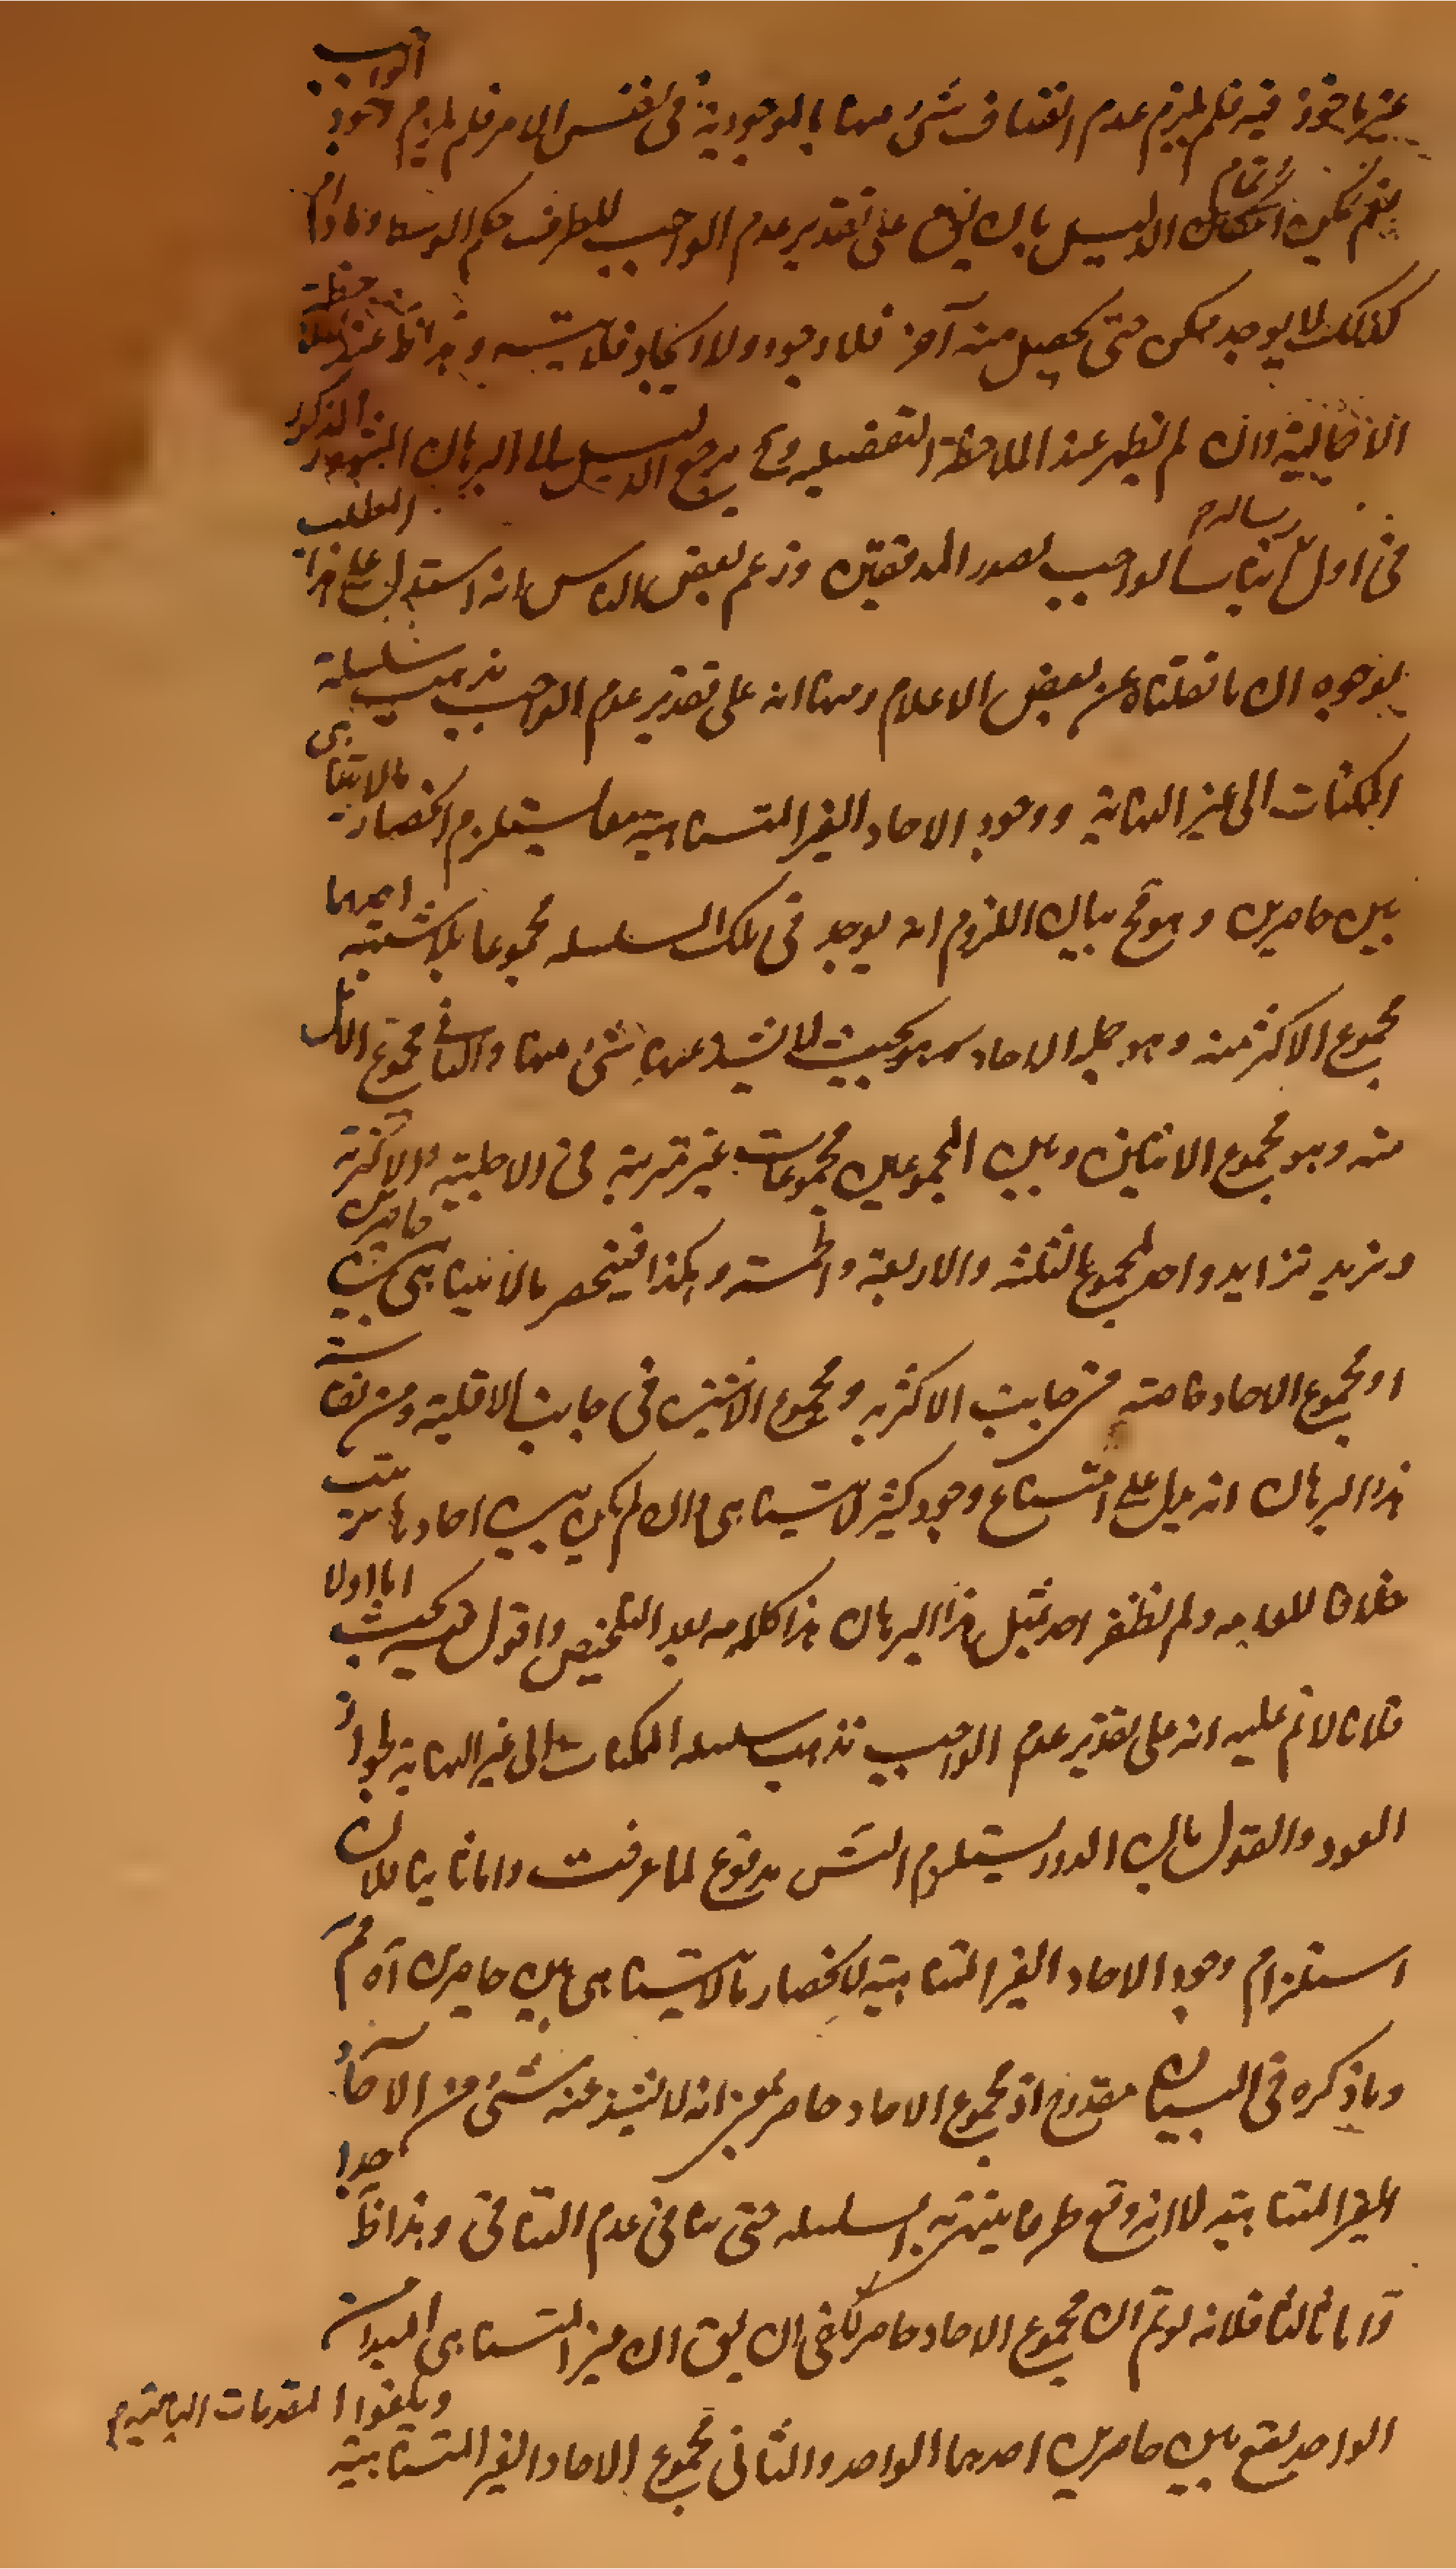 غير ماخوذ فيه فلم يلزم عدم اتصاف شئ منها بالموجودية في نفس الامر فلم يلزم وجود الواجب
نعم يمكن اتمام الدليل بان يق على تقدير عدم الواجب للطرف حكم الوسط وما دام
كذلك لا يوجد ممكن حتى يحصل منه آخر فلا وجود ولا ايجاد فلا شبهة وهذا ظ عند ملاحظة
الاجمالية وان لم يظهر عند الملاحظة التفصيلية وح يرجع الدليل الى البرهان المشهور المذكور
في اول رسالة اثبات الواجب لصدر المدققين وزعم بعض الناس انه استدل على هذا المطلب
بوجوه ان ما نقلناه عن بعض الاعلام ومنها انه على تقدير عدم الواجب يذهب سلسلة
الممكنات الى غير النهاية ووجود الاحاد الغير المتناهية معا يستلزم انحصار ما لا يتناهى
بين حاصرين وهو مح بيان اللزوم انه يوجد في تلك السلسلة مجموعا بلا شبهة احدهما
مجموع الاكثر منه وهو جملة الاحاد بحيث لا يشذ عنها شئ منها والثاني مجموع الاقل
منه وهو مجموع الاثنين وبين المجموعين مجموعات غير مرتبة في الاقلية والاكثرية
ويزيد تزايد واحد كمجموع الثلثة والاربعة والخمسة وهكذا فينحصر ما لا يتناهى بين حاصرين
او مجموع الاحاد حاصر من جانب الاكثرية ومجموع الاثنين في جانب الاقلية ومن نفاسة
هذا البرهان انه يدل على امتناع وجود كثير لا يتناهى وان لم يكن بين احادها ترتب
خلافا للعامه ولم يظفر احد بمثل هذا البرهان هذا كلامه بعد التلخيص واقول فيه بحث اما اولا
فلانا لانم عليه انه على تقدير عدم الواجب تذهب سلسلة الممكنات الى غير النهاية لجواز
الدور والقول بان الدور يستلزم التس مدفوع لما عرفت واما ثانيا فلان
استلزام وجود الاحاد الغير المتناهية لانحصار ما لا يتناهى بين حاصرين آه مم
وما ذكره في البيان مقدوح اذ مجموع الاحاد حاصر بمعنى انه لا يشذ عنه شئ من الآحاد
الغير المتناهية لا انه وقع طرفا ينتهى به السلسلة حتى ينافي عدم التناهي وهذا ظ جدا
واما ثالثا فلانه لو تم ان مجموع الاحاد حاصر لكفى ان يق ان غير المتناهى المبدا من
الواحد يقع بين حاصرين احدهما الواحد والثاني مجموع الاحاد الغير المتناهية
ويلغوا المقدمات الباقية م